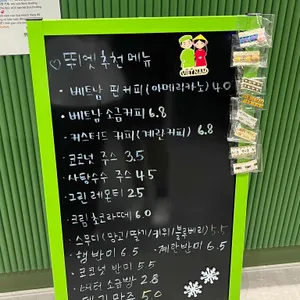 ♡ 뚜이엣 추천 메뉴
VIETNAM
· 베트남 핀커피 (아메리카노) 4.0
· 베트남 소금커피 6.8
· 커스터드 커피 (계란커피) 6.8
· 코코넛 주스 3.5
· 사탕수수 주스 4.5
· 그린 레몬티 2.5
· 크림 초코라떼 6.0
· 스무디 (망고/딸기/키위/블루베리) 5.5
· 햄 반미 6.5 · 계란반미 6.5
· 코코넛 반미 5.5
· 버터 소금빵 2.8
5.0